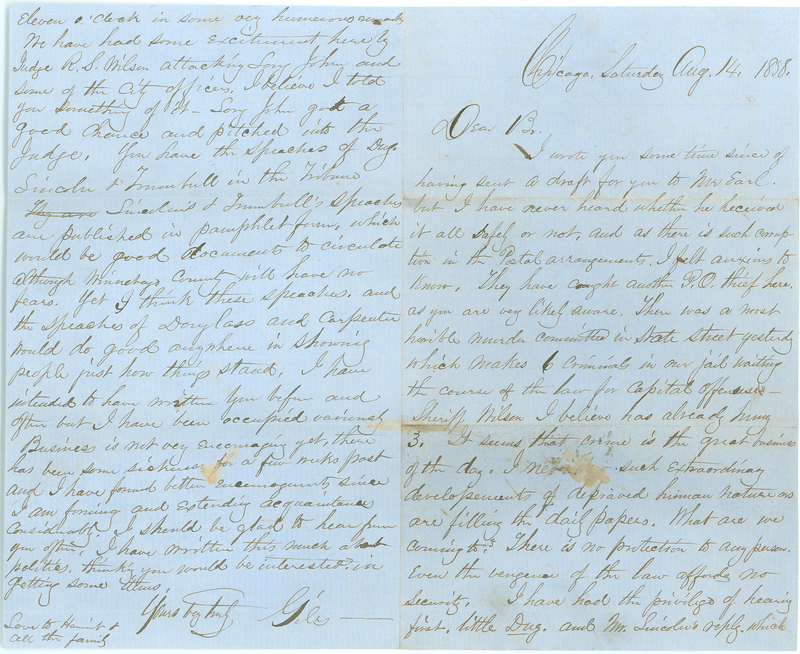 Chicago, Saturday Aug. 14. 1858.
Dear Br.
I wrote you some time since of
having sent a draft for you to Mr Earl.
but I have never heard whether he received
it all safely or not, and as there is such corrup-
tion in the Postal arrangements. I felt anxious to
know. They have caught another P.O. thief here.
as you are very likely aware. There was a most
horible murder committed in State Street yesterday
which makes 6 criminals in our jail waiting
the course of the law for Capital offenses—
Sheriff Wilson I believe has already hung
3. It seems that crime is the great business
of the day. I such extraordinary
developements of depraved human nature as
are filling the daily papers. What are we
coming to? There is no protection to any person.
Even the vengence of the law affords no
Security. I have had the privilige of hearing
first, little Dug. and Mr. Lincoln's reply. which
Eleven o'clock in some very humerous remarks
We have had some excitement here by
Judge R. S. Wilson attacking Long John, and
some of the City officers. I believe I told
you something of it— Long John got a
good chance and pitched into the
Judge. You have the speaches of Dug.
Lincoln & Trumbull in the Tribune
They are Lincoln's & Trumbull's Speaches
are published in pamphlet form, which
would be good documents to circulate
although Winnebago County will have no
fears. Yet I think these speaches. and
the speaches of Douglass and Carpenter
would do good anywhere in showing
people just how things stand. I have
intended to have written you before and
often but I have been occupied variously
Business is not very encouraging yet, there
has been some sickness for a few weeks past
and I have found better encouragement since
I am forming and extending acquaintance
considerably. I should be glad to hear from
you often. I have written this much about
politics. thinking you would be interested in
getting some items.
Yours very truly Giles
Love to & 
all the family